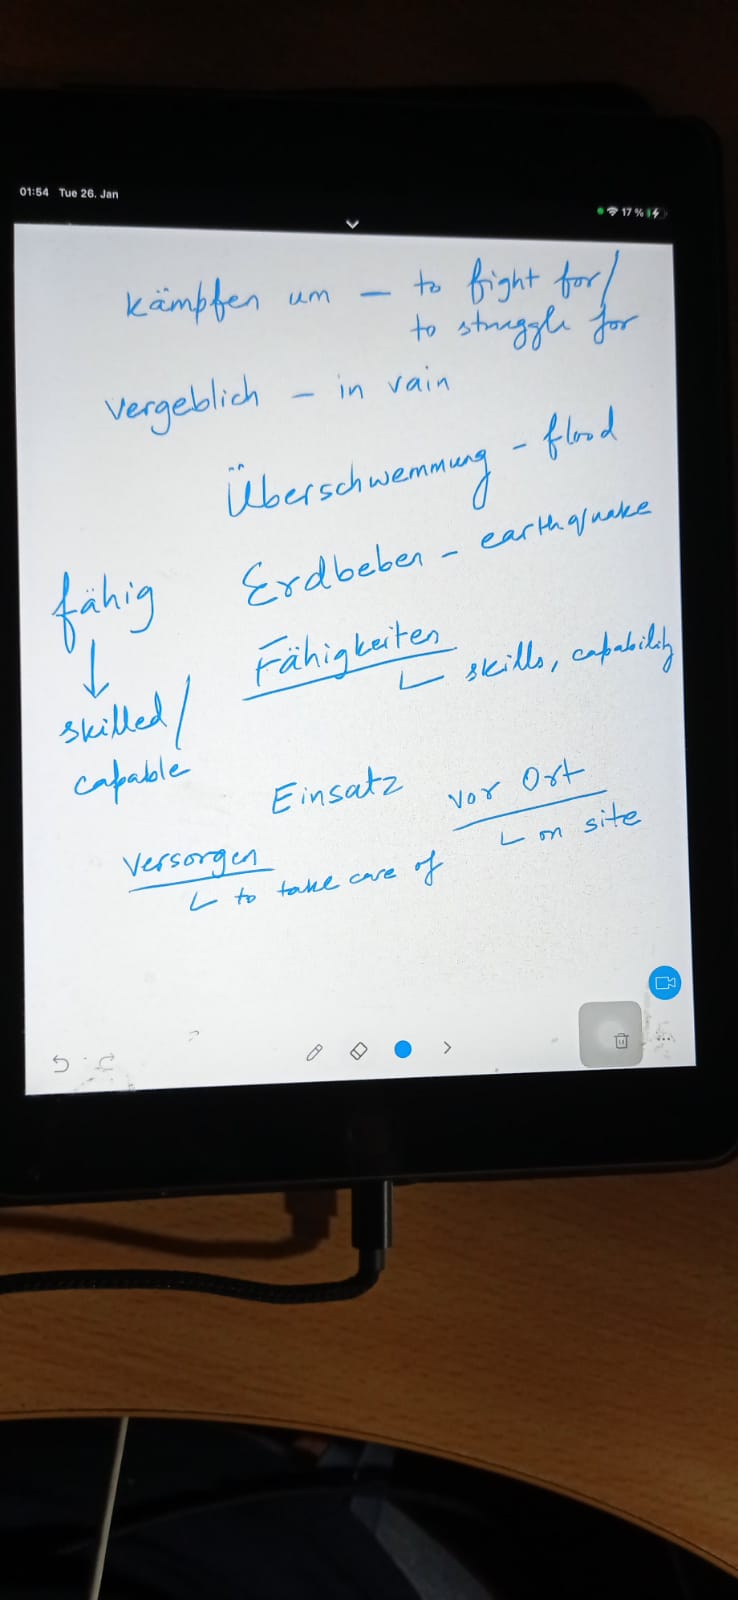 01:54 Tue 26. Jan
17 %
kämpfen um – to fight for/
to struggle for
vergeblich – in vain
Überschwemmung – flood
Erdbeben – earthquake
fähig
↓
skilled/
capable
Fähigkeiten
↳ skills, capability
Einsatz
vor Ort
↳ on site
versorgen
↳ to take care of